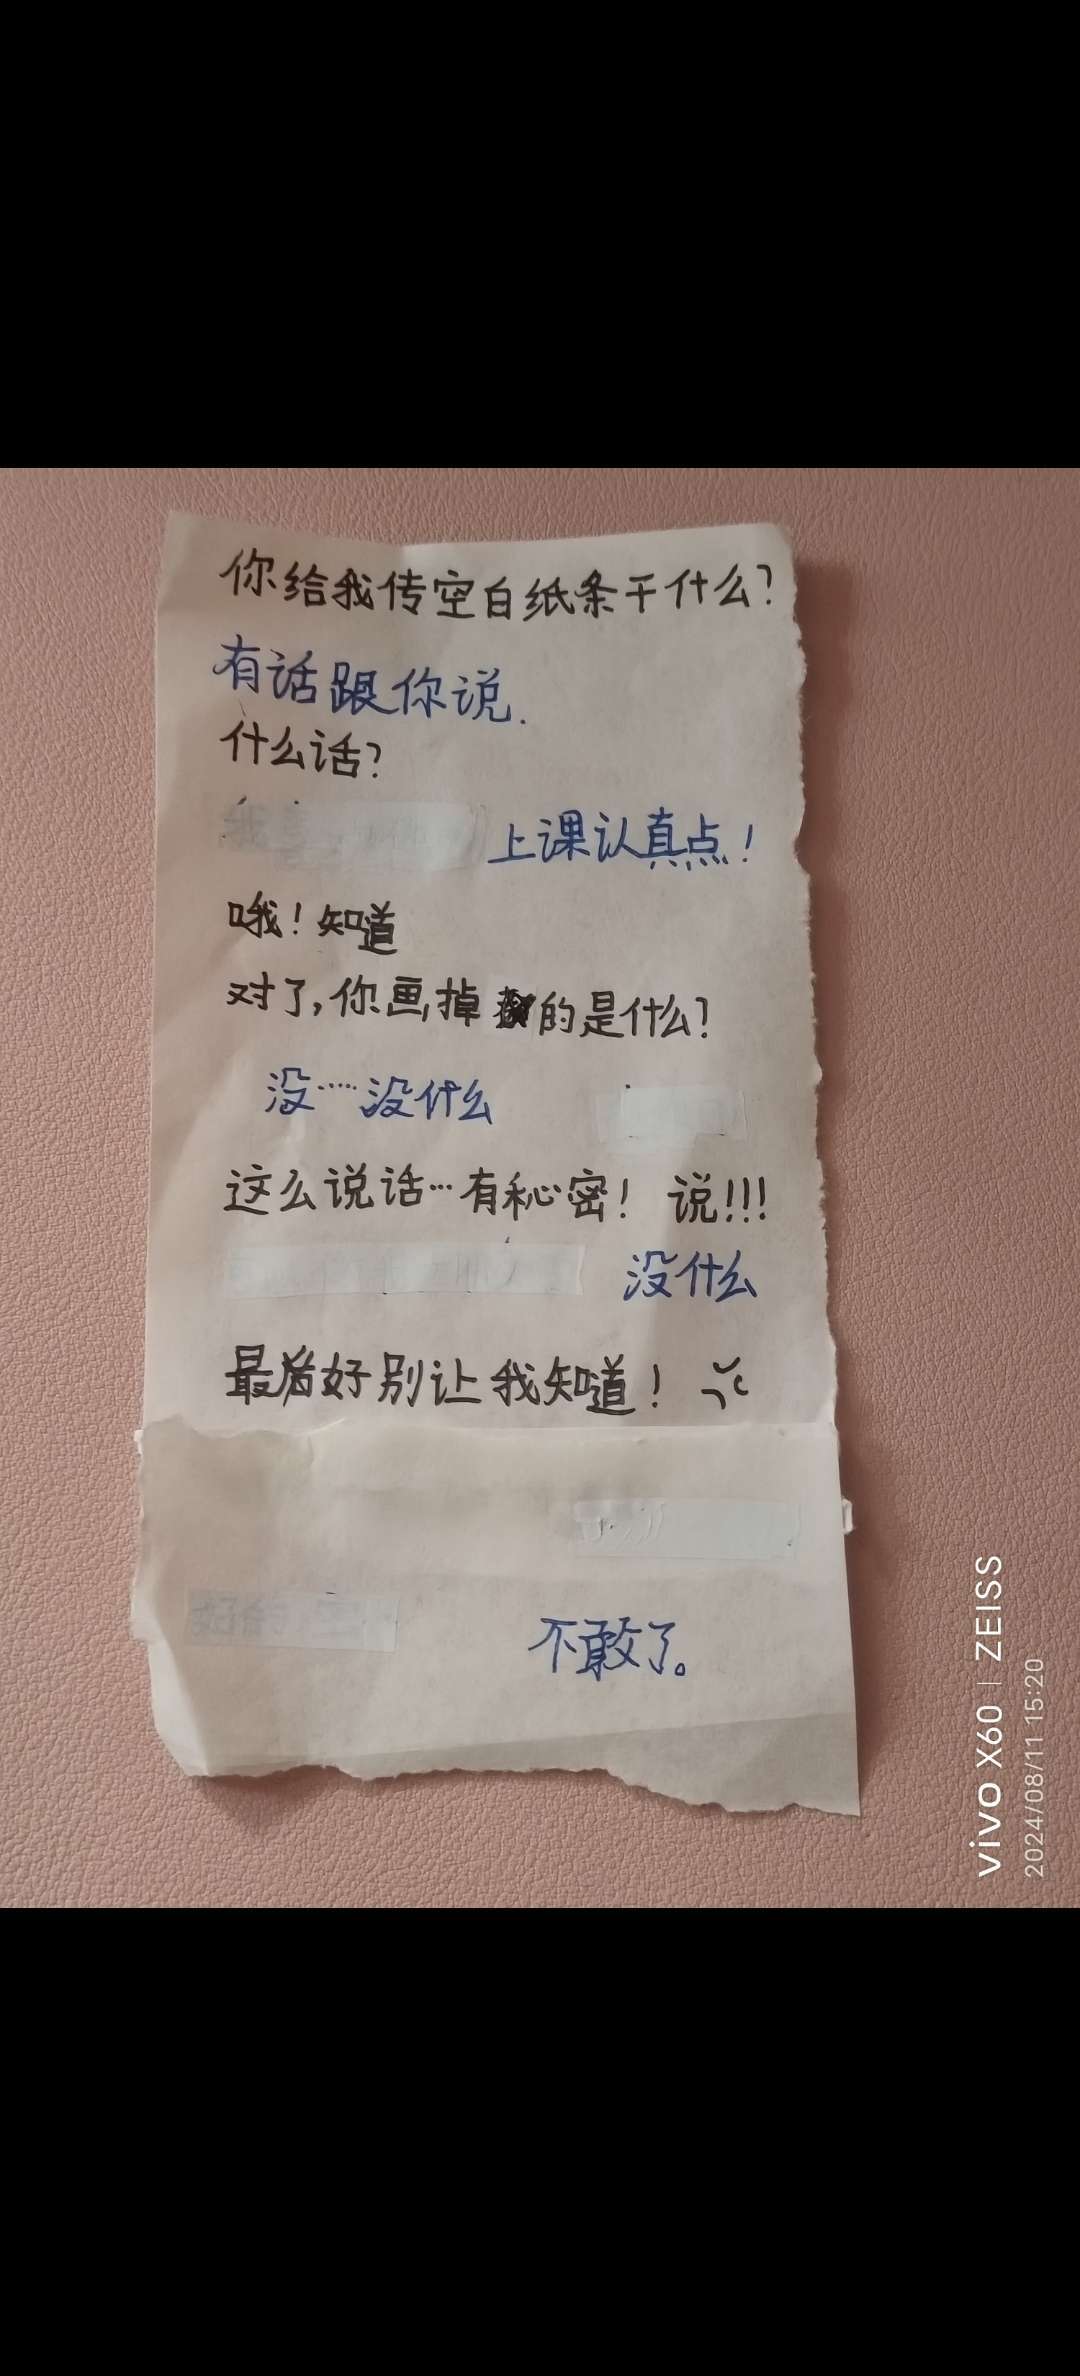 你给我传空白纸条干什么?
有话跟你说.
什么话?
上课认真点!
哦!知道
对了,你画掉的是什么?
没……没什么
这么说话…有秘密! 说!!!
没什么
最好别让我知道!
不敢了。
vivo X60 | ZEISS
2024/08/11 15:20